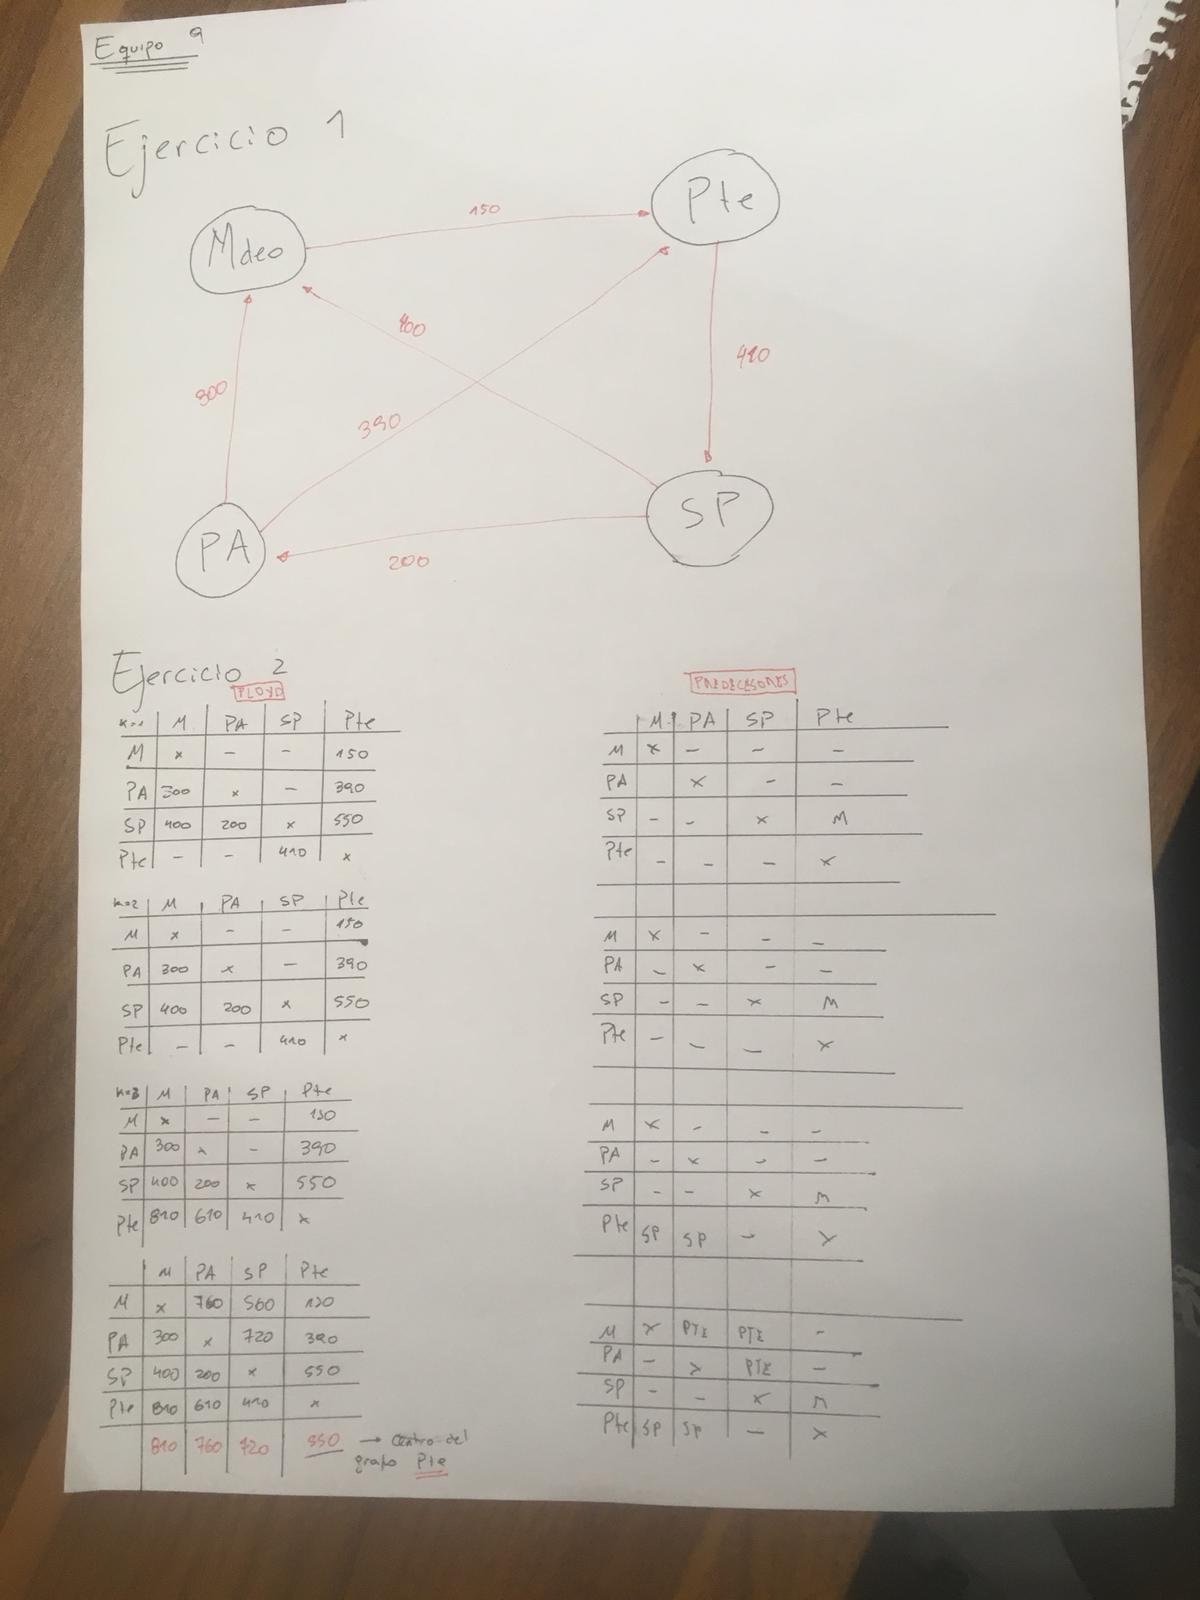 Equipo 9
Ejercicio 1
Mdeo
Pte
PA
SP
150
400
410
300
390
200
Ejercicio 2
FLOYD
K=1 M PA SP Pte
M x - - 150
PA 300 x - 390
SP 400 200 x 550
Pte - - 410 x
K=2 M PA SP Pte
M x - - 150
PA 300 x - 390
SP 400 200 x 550
Pte - - 410 x
K=3 M PA SP Pte
M x - - 150
PA 300 x - 390
SP 400 200 x 550
Pte 810 610 410 x
M PA SP Pte
M x 760 560 150
PA 300 x 720 390
SP 400 200 x 550
Pte 810 610 410 x
810 760 720 550 → Centro del
grafo Pte
PREDECESORES
M PA SP Pte
M x - - -
PA x - -
SP - - x M
Pte - - - x
M x - - -
PA - x - -
SP - - x M
Pte - - - x
M x - - -
PA - x - -
SP - - x M
Pte SP SP - x
M x PTE PTE -
PA - x PTE -
SP - - x M
Pte SP SP - x